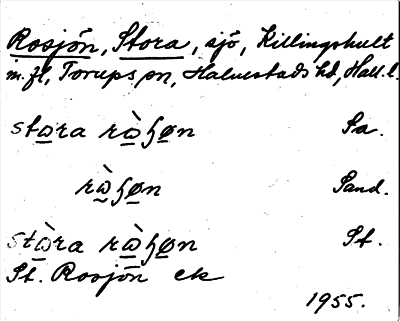 Rosjön, Stora, sjö, Killingshult
m.fl., Torups sn, Halmstads hd, Hall. l.
stora rɷ̀ɧøn Sa.
rɷ̀ɧøn Sand.
stɷ̀ra rɷ̀ɧøn St.
St. Rosjön ek
1955.